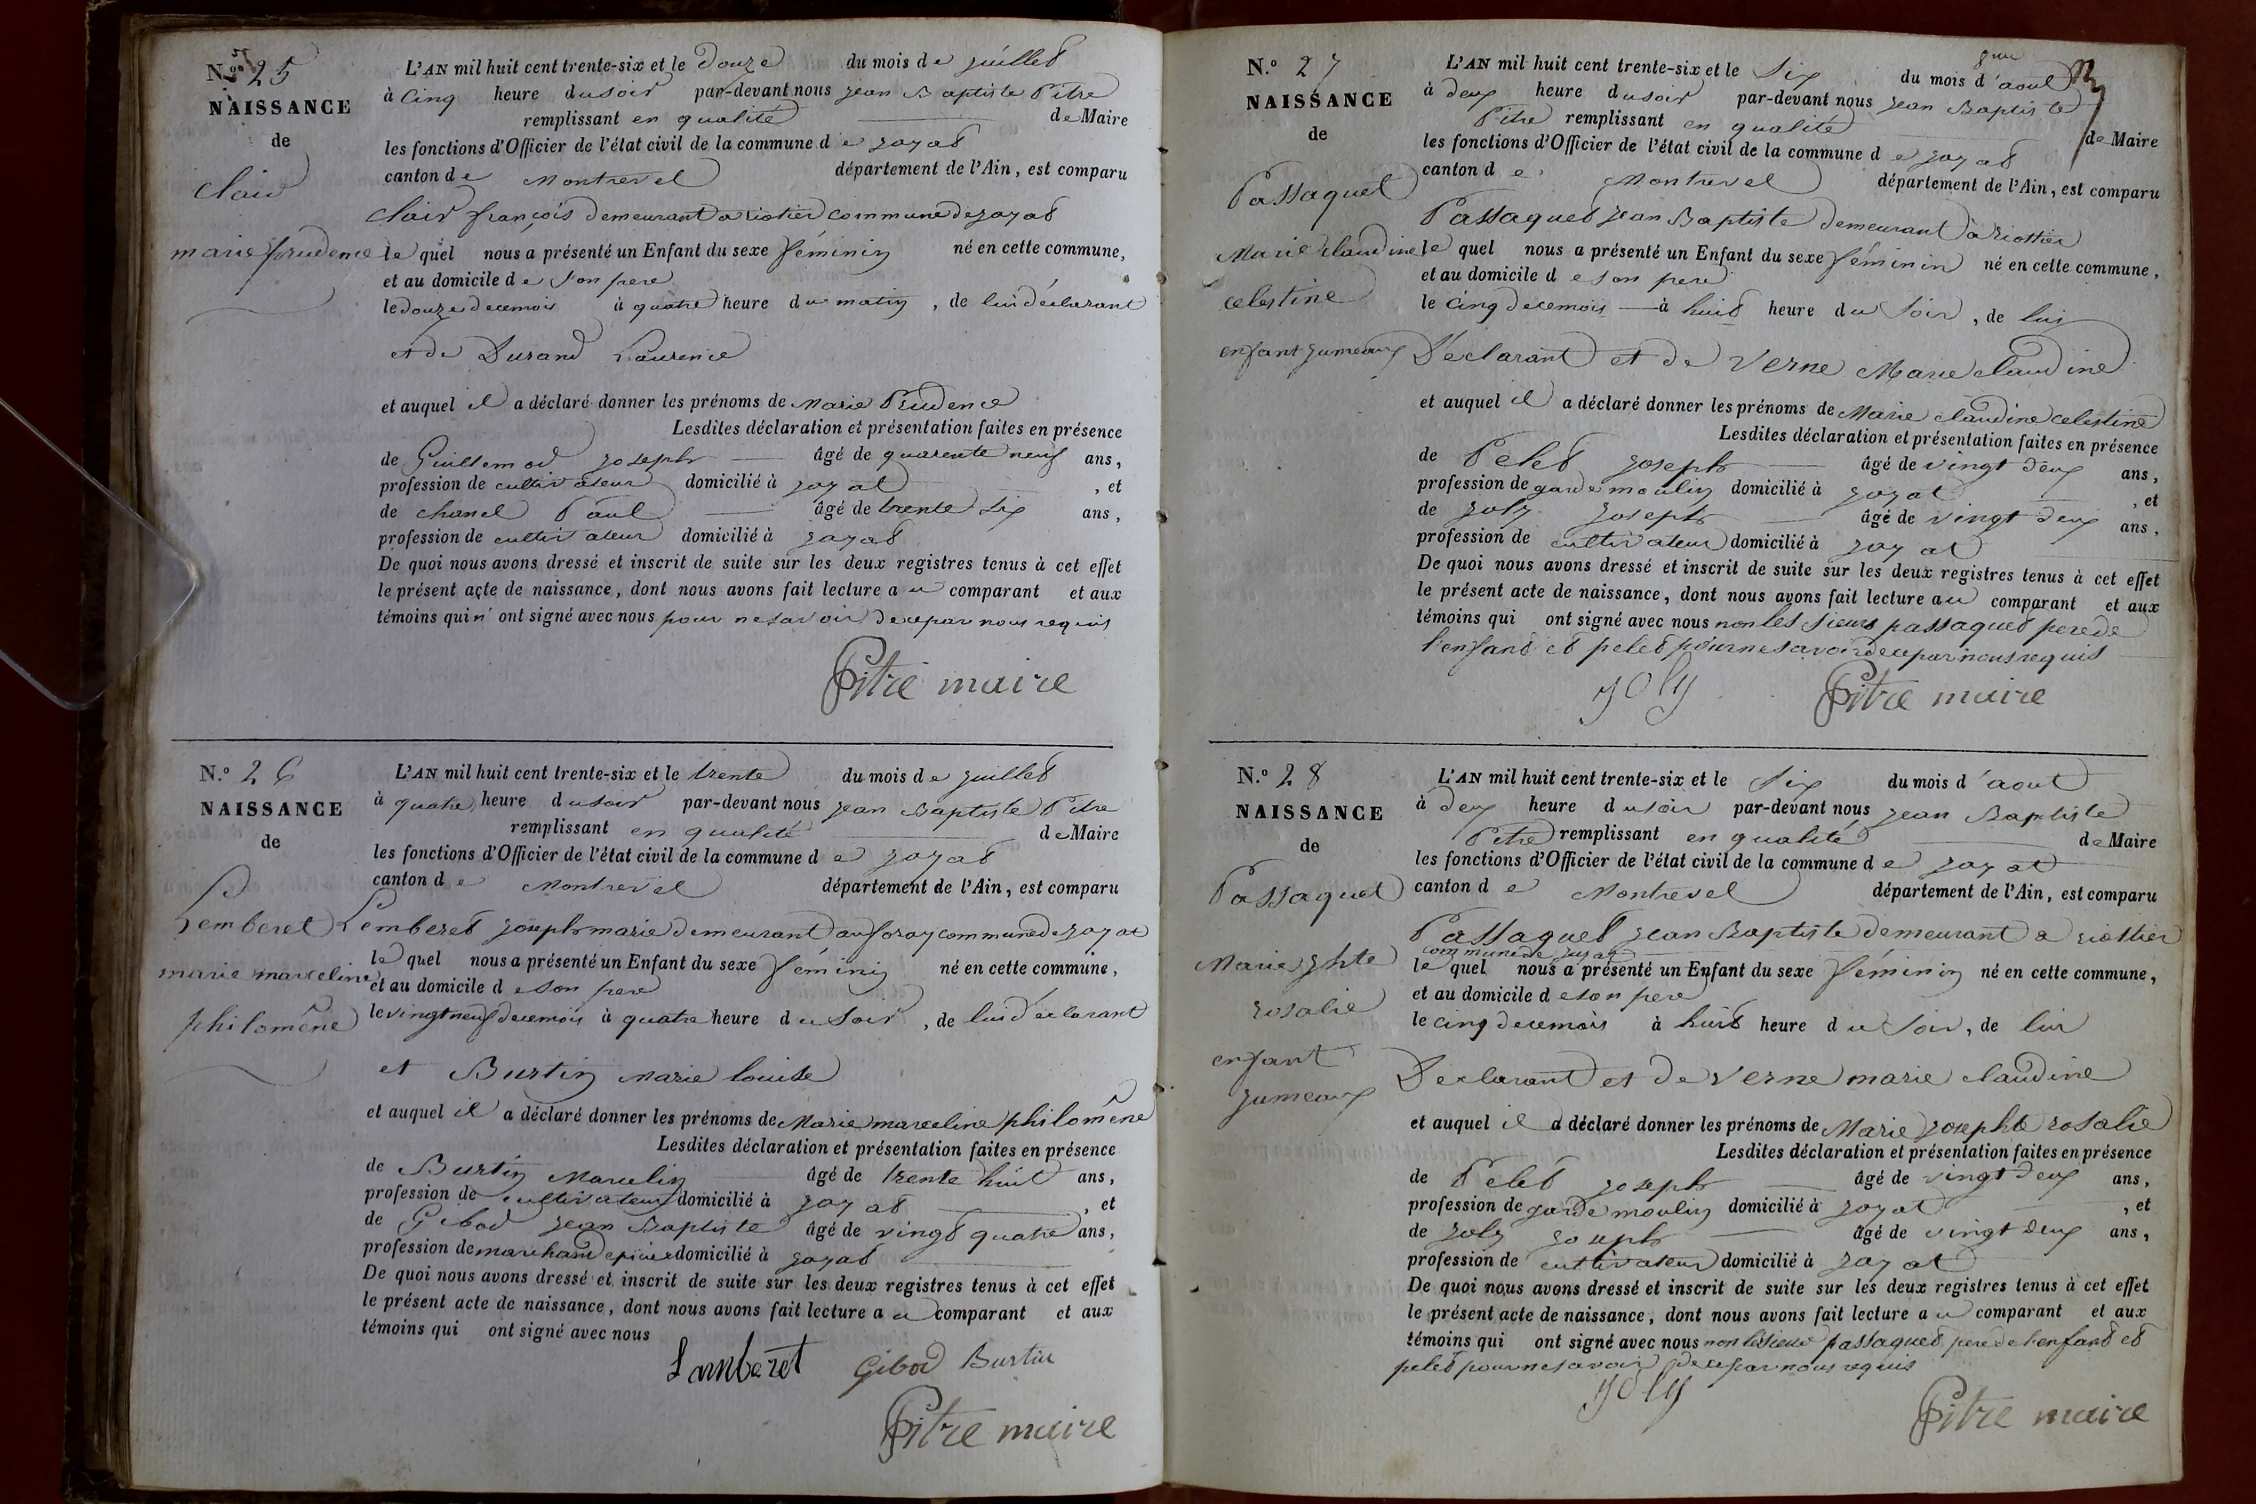 N.º 25
NAISSANCE
de
clair
marie prudence
L'AN mil huit cent trente-six et le douze du mois de juillet
à cinq heure du soir par-devant nous jean Baptiste Pitre
remplissant en qualité de Maire
les fonctions d'Officier de l'état civil de la commune de jayat
canton de Montrevel département de l'Ain, est comparu
clair françois demeurant a riottier commune de jayat
le quel nous a présenté un Enfant du sexe féminin né en cette commune,
et au domicile de son pere
le douze de ce mois à quatre heure du matin, de lui déclarant
et de Durand Laurence
et auquel il a déclaré donner les prénoms de Marie Prudence
Lesdites déclaration et présentation faites en présence
de Guillemod joseph âgé de quarente neuf ans,
profession de cultivateur domicilié à jayat, et
de chanel Paul âgé de trente six ans,
profession de cultivateur domicilié à jayat
De quoi nous avons dressé et inscrit de suite sur les deux registres tenus à cet effet
le présent acte de naissance, dont nous avons fait lecture au comparant et aux
témoins qui n'ont signé avec nous pour ne savoir de ce par nous requis
Pitre maire
N.º 26
NAISSANCE
de
Lemberet
marie marceline
philomêne
L'AN mil huit cent trente-six et le trente du mois de juillet
à quatre heure du soir par-devant nous jean Baptiste Pitre
remplissant en qualité de Maire
les fonctions d'Officier de l'état civil de la commune de jayat
canton de Montrevel département de l'Ain, est comparu
Lemberet joseph marie demeurant au foray commune de jayat
le quel nous a présenté un Enfant du sexe féminin né en cette commune,
et au domicile de son pere
le vingt neuf de ce mois à quatre heure du soir, de lui déclarant
et Burtin marie louise
et auquel il a déclaré donner les prénoms de Marie marceline philomêne
Lesdites déclaration et présentation faites en présence
de Burtin Marcelin âgé de trente huit ans,
profession de cultivateur domicilié à jayat, et
de Gibod jean Baptiste âgé de vingt quatre ans,
profession de marchand epicier domicilié à jayat
De quoi nous avons dressé et inscrit de suite sur les deux registres tenus à cet effet
le présent acte de naissance, dont nous avons fait lecture au comparant et aux
témoins qui ont signé avec nous
Lambert Gibod Burtin
Pitre maire
N.º 27
NAISSANCE
de
Passaquet
Marie claudine
celestine
enfant jumeaux
L'AN mil huit cent trente-six et le six du mois d'aout
à deux heure du soir par-devant nous jean Baptiste
Pitre remplissant en qualité de Maire
les fonctions d'Officier de l'état civil de la commune de jayat
canton de Montrevel département de l'Ain, est comparu
Passaquet jean Baptiste demeurant à riottier
le quel nous a présenté un Enfant du sexe féminin né en cette commune,
et au domicile de son pere
le cinq de ce mois à huit heure du soir, de lui
Déclarant et de Verne Marie claudine
et auquel il a déclaré donner les prénoms de Marie claudine celestine
Lesdites déclaration et présentation faites en présence
de Pelet joseph âgé de vingt deux ans,
profession de garde moulin domicilié à jayat, et
de joly joseph âgé de vingt deux ans,
profession de cultivateur domicilié à jayat
De quoi nous avons dressé et inscrit de suite sur les deux registres tenus à cet effet
le présent acte de naissance, dont nous avons fait lecture au comparant et aux
témoins qui ont signé avec nous non les sieurs passaquet pere de
l'enfant et pelet pour ne savoir de ce par nous requis
joly Pitre maire
N.º 28
NAISSANCE
de
Passaquet
Marie jhte
rosalie
enfant
jumeaux
L'AN mil huit cent trente-six et le six du mois d'aout
à deux heure du soir par-devant nous jean Baptiste
Pitre remplissant en qualité de Maire
les fonctions d'Officier de l'état civil de la commune de jayat
canton de Montrevel département de l'Ain, est comparu
Passaquet jean Baptiste demeurant a riottier
commune de jayat
le quel nous a présenté un Enfant du sexe féminin né en cette commune,
et au domicile de son pere
le cinq de ce mois à huit heure du soir, de lui
Declarant et de Verne marie claudine
et auquel il a déclaré donner les prénoms de Marie josephte rosalie
Lesdites déclaration et présentation faites en présence
de Pelet joseph âgé de vingt deux ans,
profession de garde moulin domicilié à jayat, et
de joly joseph âgé de vingt deux ans,
profession de cultivateur domicilié à jayat
De quoi nous avons dressé et inscrit de suite sur les deux registres tenus à cet effet
le présent acte de naissance, dont nous avons fait lecture au comparant et aux
témoins qui ont signé avec nous non le sieur passaquet pere de l'enfant et
pelet pour ne savoir de ce par nous requis
joly
Pitre maire